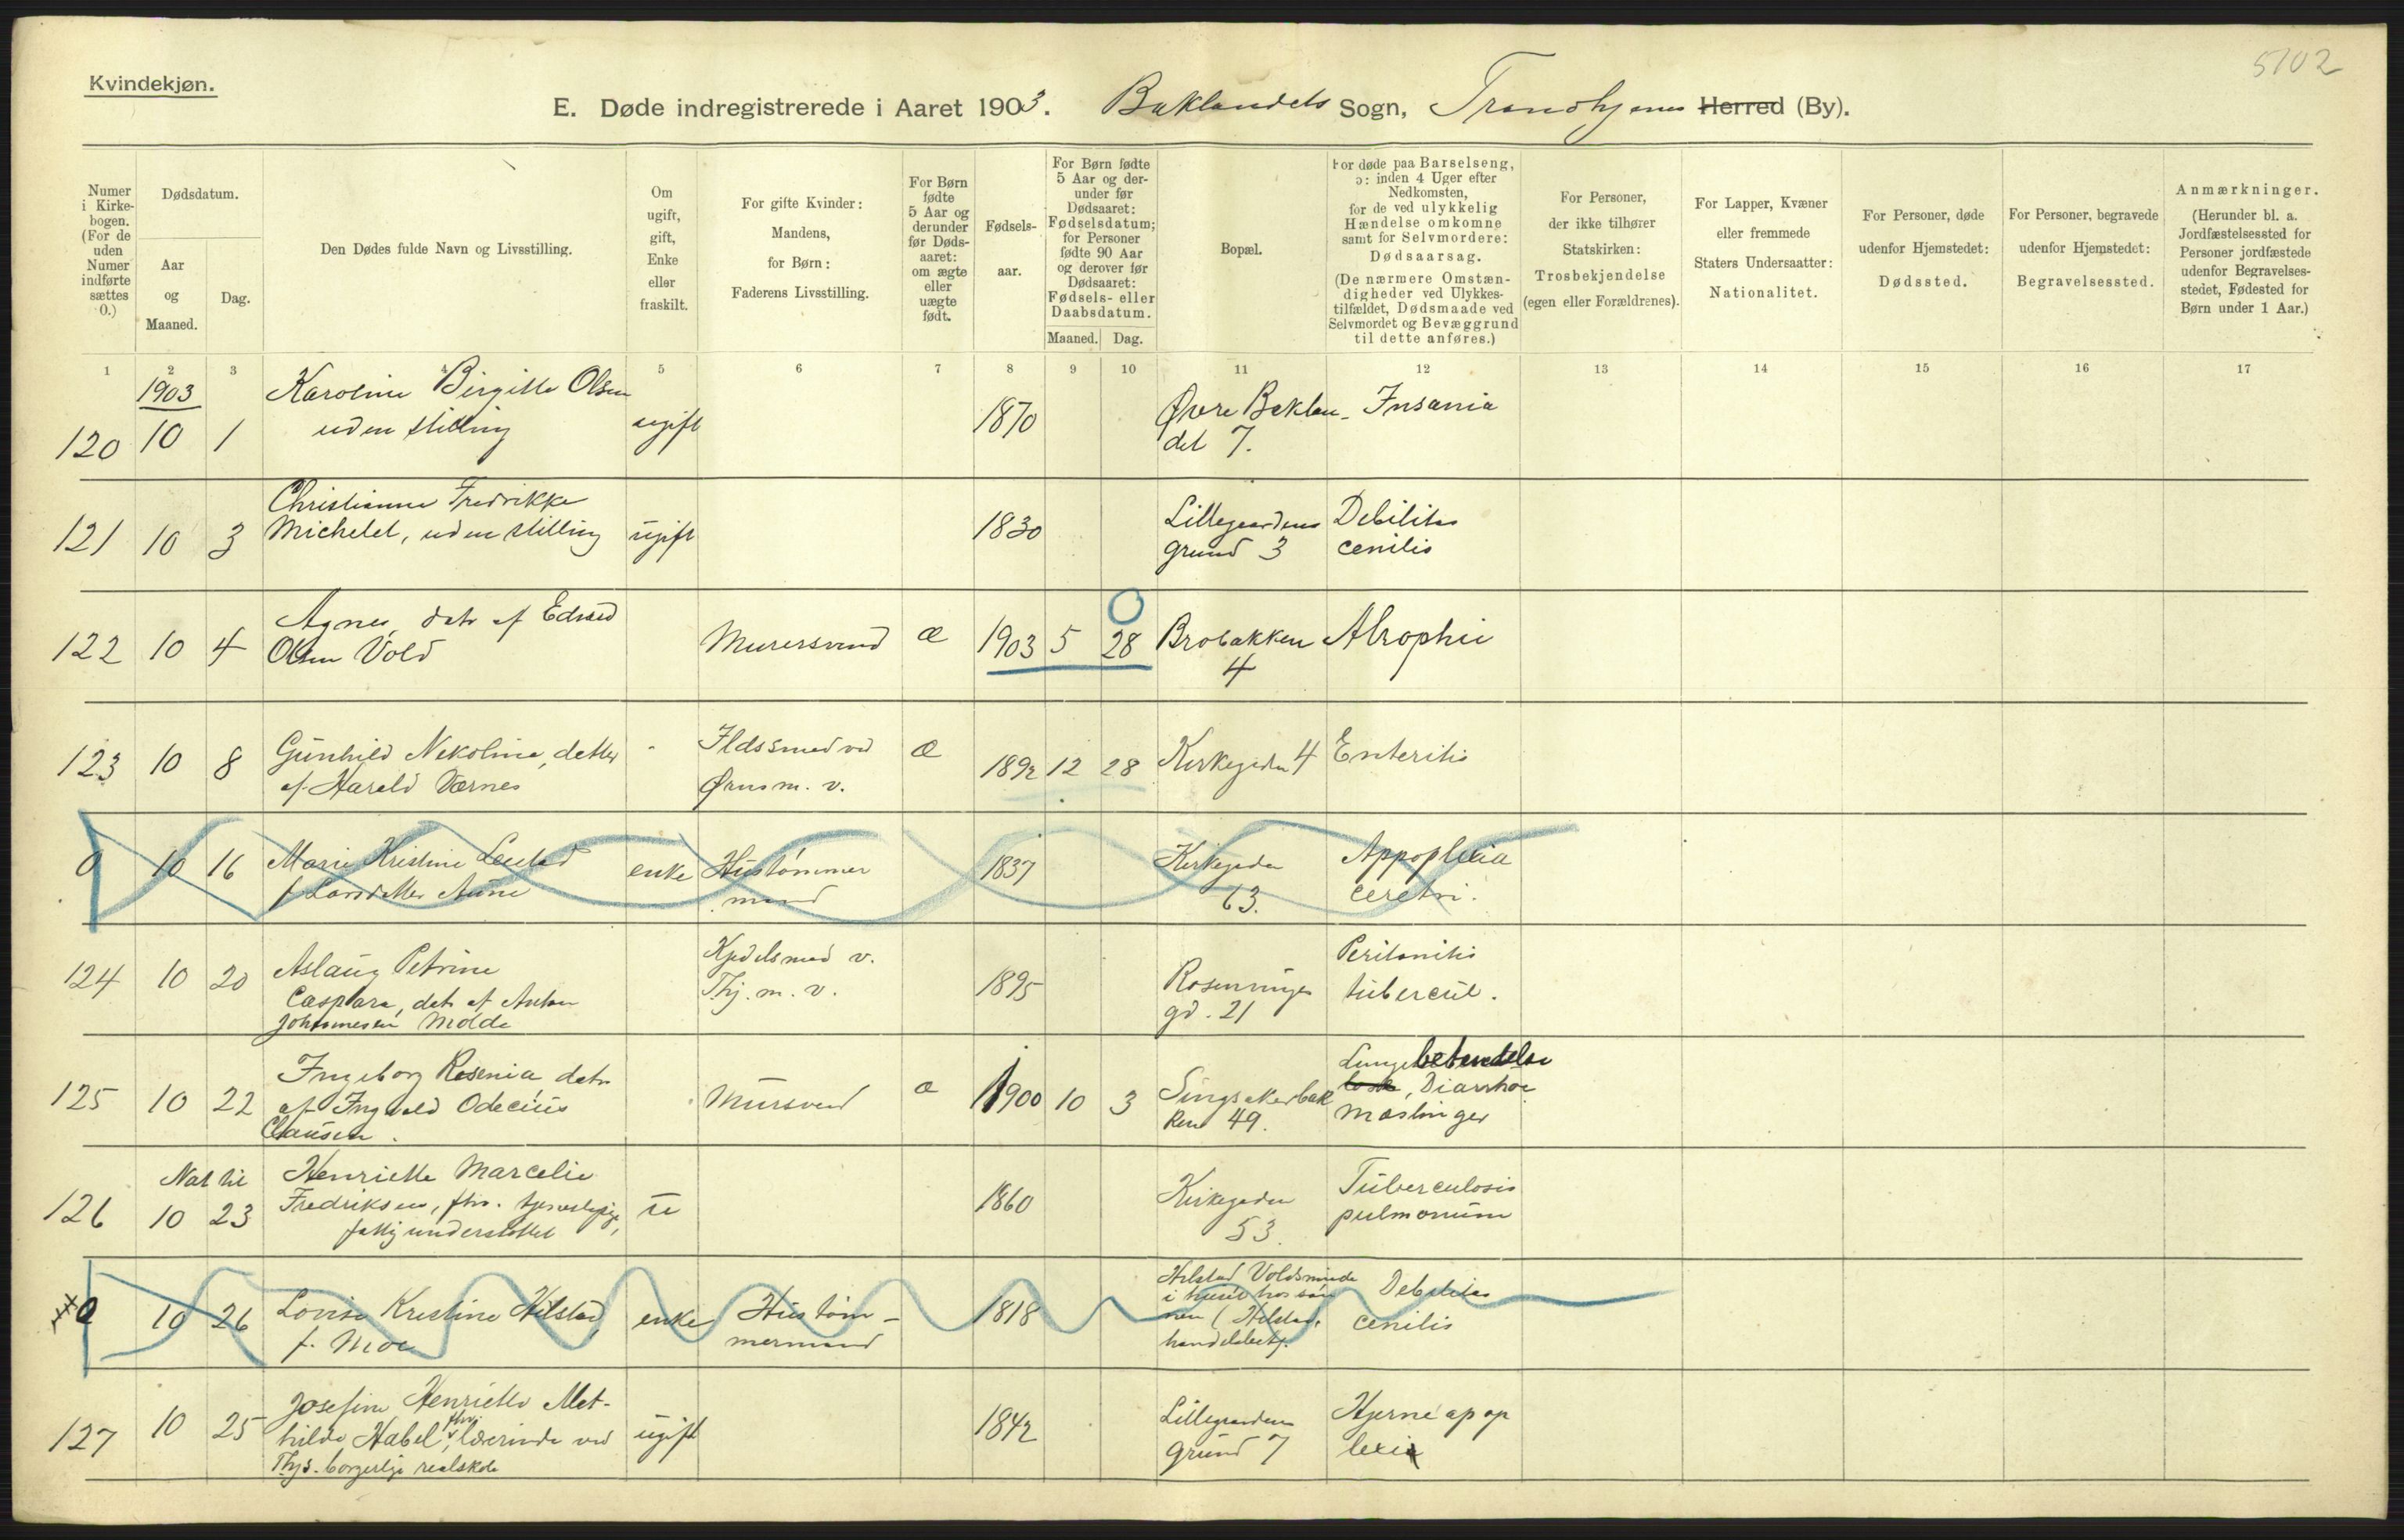 5702
Kvindekjøn.
E. Døde indregistrerede i Aaret 1903. Baklandets Sogn, Trondhjems Herred (By).
Numer i Kirkebogen. (For de uden Numer indførte sættes 0.)
Dødsdatum.
Aar og Maaned.
Dag.
Den Dødes fulde Navn og Livsstilling.
Om ugift, gift, Enke eller fraskilt.
For gifte Kvinder: Mandens, for Børn: Faderens Livsstilling.
For Børn fødte 5 Aar og derunder før Dødsaaret: om ægte eller uægte født.
Fødselsaar.
For Børn fødte 5 Aar og derunder før Dødsaaret: Fødselsdatum; for Personer fødte 90 Aar og derover før Dødsaaret: Fødsels- eller Daabsdatum.
Maaned. Dag.
Bopæl.
For døde paa Barselseng, ɔ: inden 4 Uger efter Nedkomsten, for de ved ulykkelig Hændelse omkomne samt for Selvmordere: Dødsaarsag. (De nærmere Omstændigheder ved Ulykkestilfældet, Dødsmaade ved Selvmordet og Bevæggrund til dette anføres.)
For Personer, der ikke tilhører Statskirken: Trosbekjendelse (egen eller Forældrenes).
For Lapper, Kvæner eller fremmede Staters Undersaatter: Nationalitet.
For Personer, døde udenfor Hjemstedet: Dødssted.
For Personer, begravede udenfor Hjemstedet: Begravelsessted.
Anmærkninger. (Herunder bl. a. Jordfæstelsessted for Personer jordfæstede udenfor Begravelsesstedet, Fødested for Børn under 1 Aar.)
1 2 3 4 5 6 7 8 9 10 11 12 13 14 15 16 17
1903
120 10 1 Karoline Birgitte Olsen uden stilling ugift 1870 Øvre Baklandet 7. Insania
121 10 3 Christianne Fredrikke Michelet, uden stilling ugift 1830 Lillegaardens grund 3 Debilitas cenilis
122 10 4 Agnes, datr af Edvard Olsen Vold Murersvend æ 1903 5 28 Brobakken 4 Atrophie
123 10 8 Gunhild Nekoline, detter af Harald Værnes - Ildsmed ved Ørens m. v. æ 1892 12 28 Kirkegaden 4 Enteritis
0 10 16 Marie Kristine Leistad f Larsdatter Aune enke Hustømmermand 1837 Kirkegaden 63. Appoplexia cerebri.
124 10 20 Aslaug Petrine Caspara, datr af Anton Johannesen Molde Kjedelsmed v. Thj. m. v. 1895 Rosenborg gd. 21 Peritonitis tubercul.
125 10 22 Ingeborg Rosenia datr af Ingvald Odecius Clausen. Mursvend æ 1900 10 3 Singsakerbakken 49. Lungebetendelse, Diarrhoe mæslinger
126 Nat til 10 23 Henriette Marcelie Fredriksen, fhv. tjenestepige, fattigunderstøttet u 1860 Kirkegaden 53. Tuberculosis pulmonum
0 10 26 Lovise Kristine Hilstad, f. Moe enke Hustømmermand 1818 Hilstad Voldsminde i huset hos sønnen (Hilstad, handelsbetj. Debilitas cenilis
127 10 25 Josefine Henriette Mathilde Habel, fhv. lærerinde ved Thjs. borgerlige realskole ugift 1842 Lillegaardens grund 7 Hjerneapoplexia